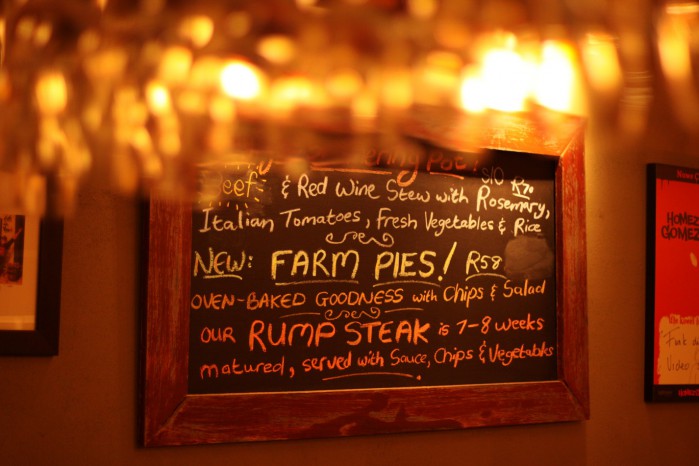 Pot!
Beef & Red Wine Stew with Rosemary, R70
Italian Tomatoes, Fresh Vegetables & Rice
NEW: FARM PIES! R58
OVEN-BAKED GOODNESS with Chips & Salad
OUR RUMP STEAK is 7-8 weeks
matured, served with Sauce, Chips & Vegetables
HOMEZ
GOMEZ
Video